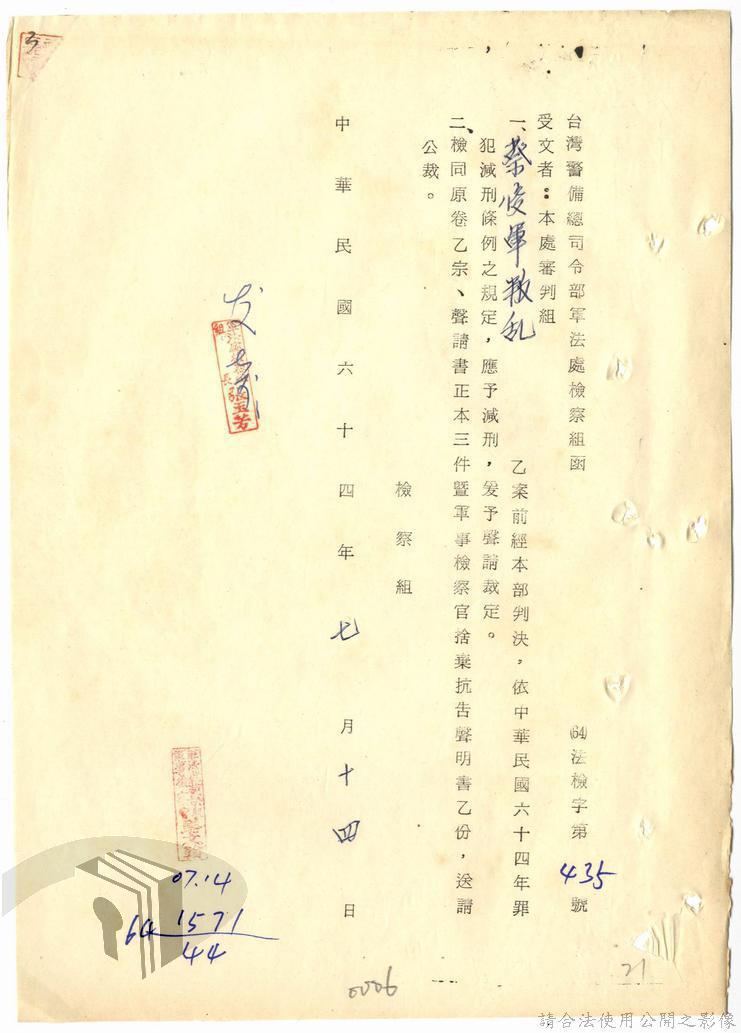 台灣警備總司令部軍法處檢察組函
(64)法檢字第435號
受文者：本處審判組
一、蔡俊軍叛乱乙案前經本部判決，依中華民國六十四年罪
犯減刑條例之規定，應予減刑，爰予聲請裁定。
二、檢同原卷乙宗、聲請書正本三件暨軍事檢察官捨棄抗告聲明書乙份，送請
公裁。
檢察組
中華民國六十四年七月十四日
發
組長張玉芳
07.14
64 1571
44
0006
21
請合法使用公開之影像